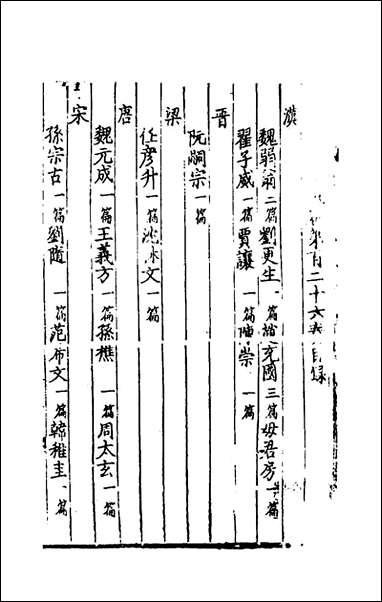 第百二十六卷目錄
漢
魏弱翁二篇 劉更生一篇 趙充國三篇 毋君房一篇
翟子威一篇 賈讓一篇 陳崇一篇
晉
阮嗣宗一篇
梁
任彥升一篇 沈休文一篇
唐
魏元成一篇 王義方一篇 孫樵一篇 周太玄一篇
宋
孫宗古一篇 劉隨一篇 范希文一篇 韓稚圭一篇